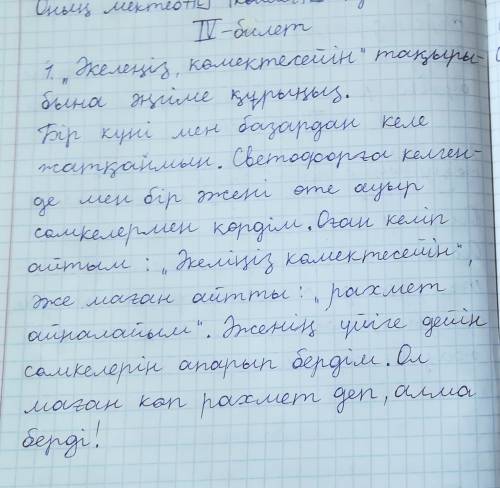 Оның мектебің
IV-билет
1. „Әкелеңіз, көмектесейін" тақыры-
бына әңгіме құрыңыз.
Бір күні мен базардан келе
жатқанмын. Светофорға келген-
де мен бір әжені өте ауыр
сөмкелермен көрдім. Оған келіп
айтым: „Әкеліңіз көмектесейін",
әже маған айтты: „рахмет
айналайым". Әженің үйіге дейін
сөмкелерін апарып бердім. Ол
маған көп рахмет деп, алма
берді!